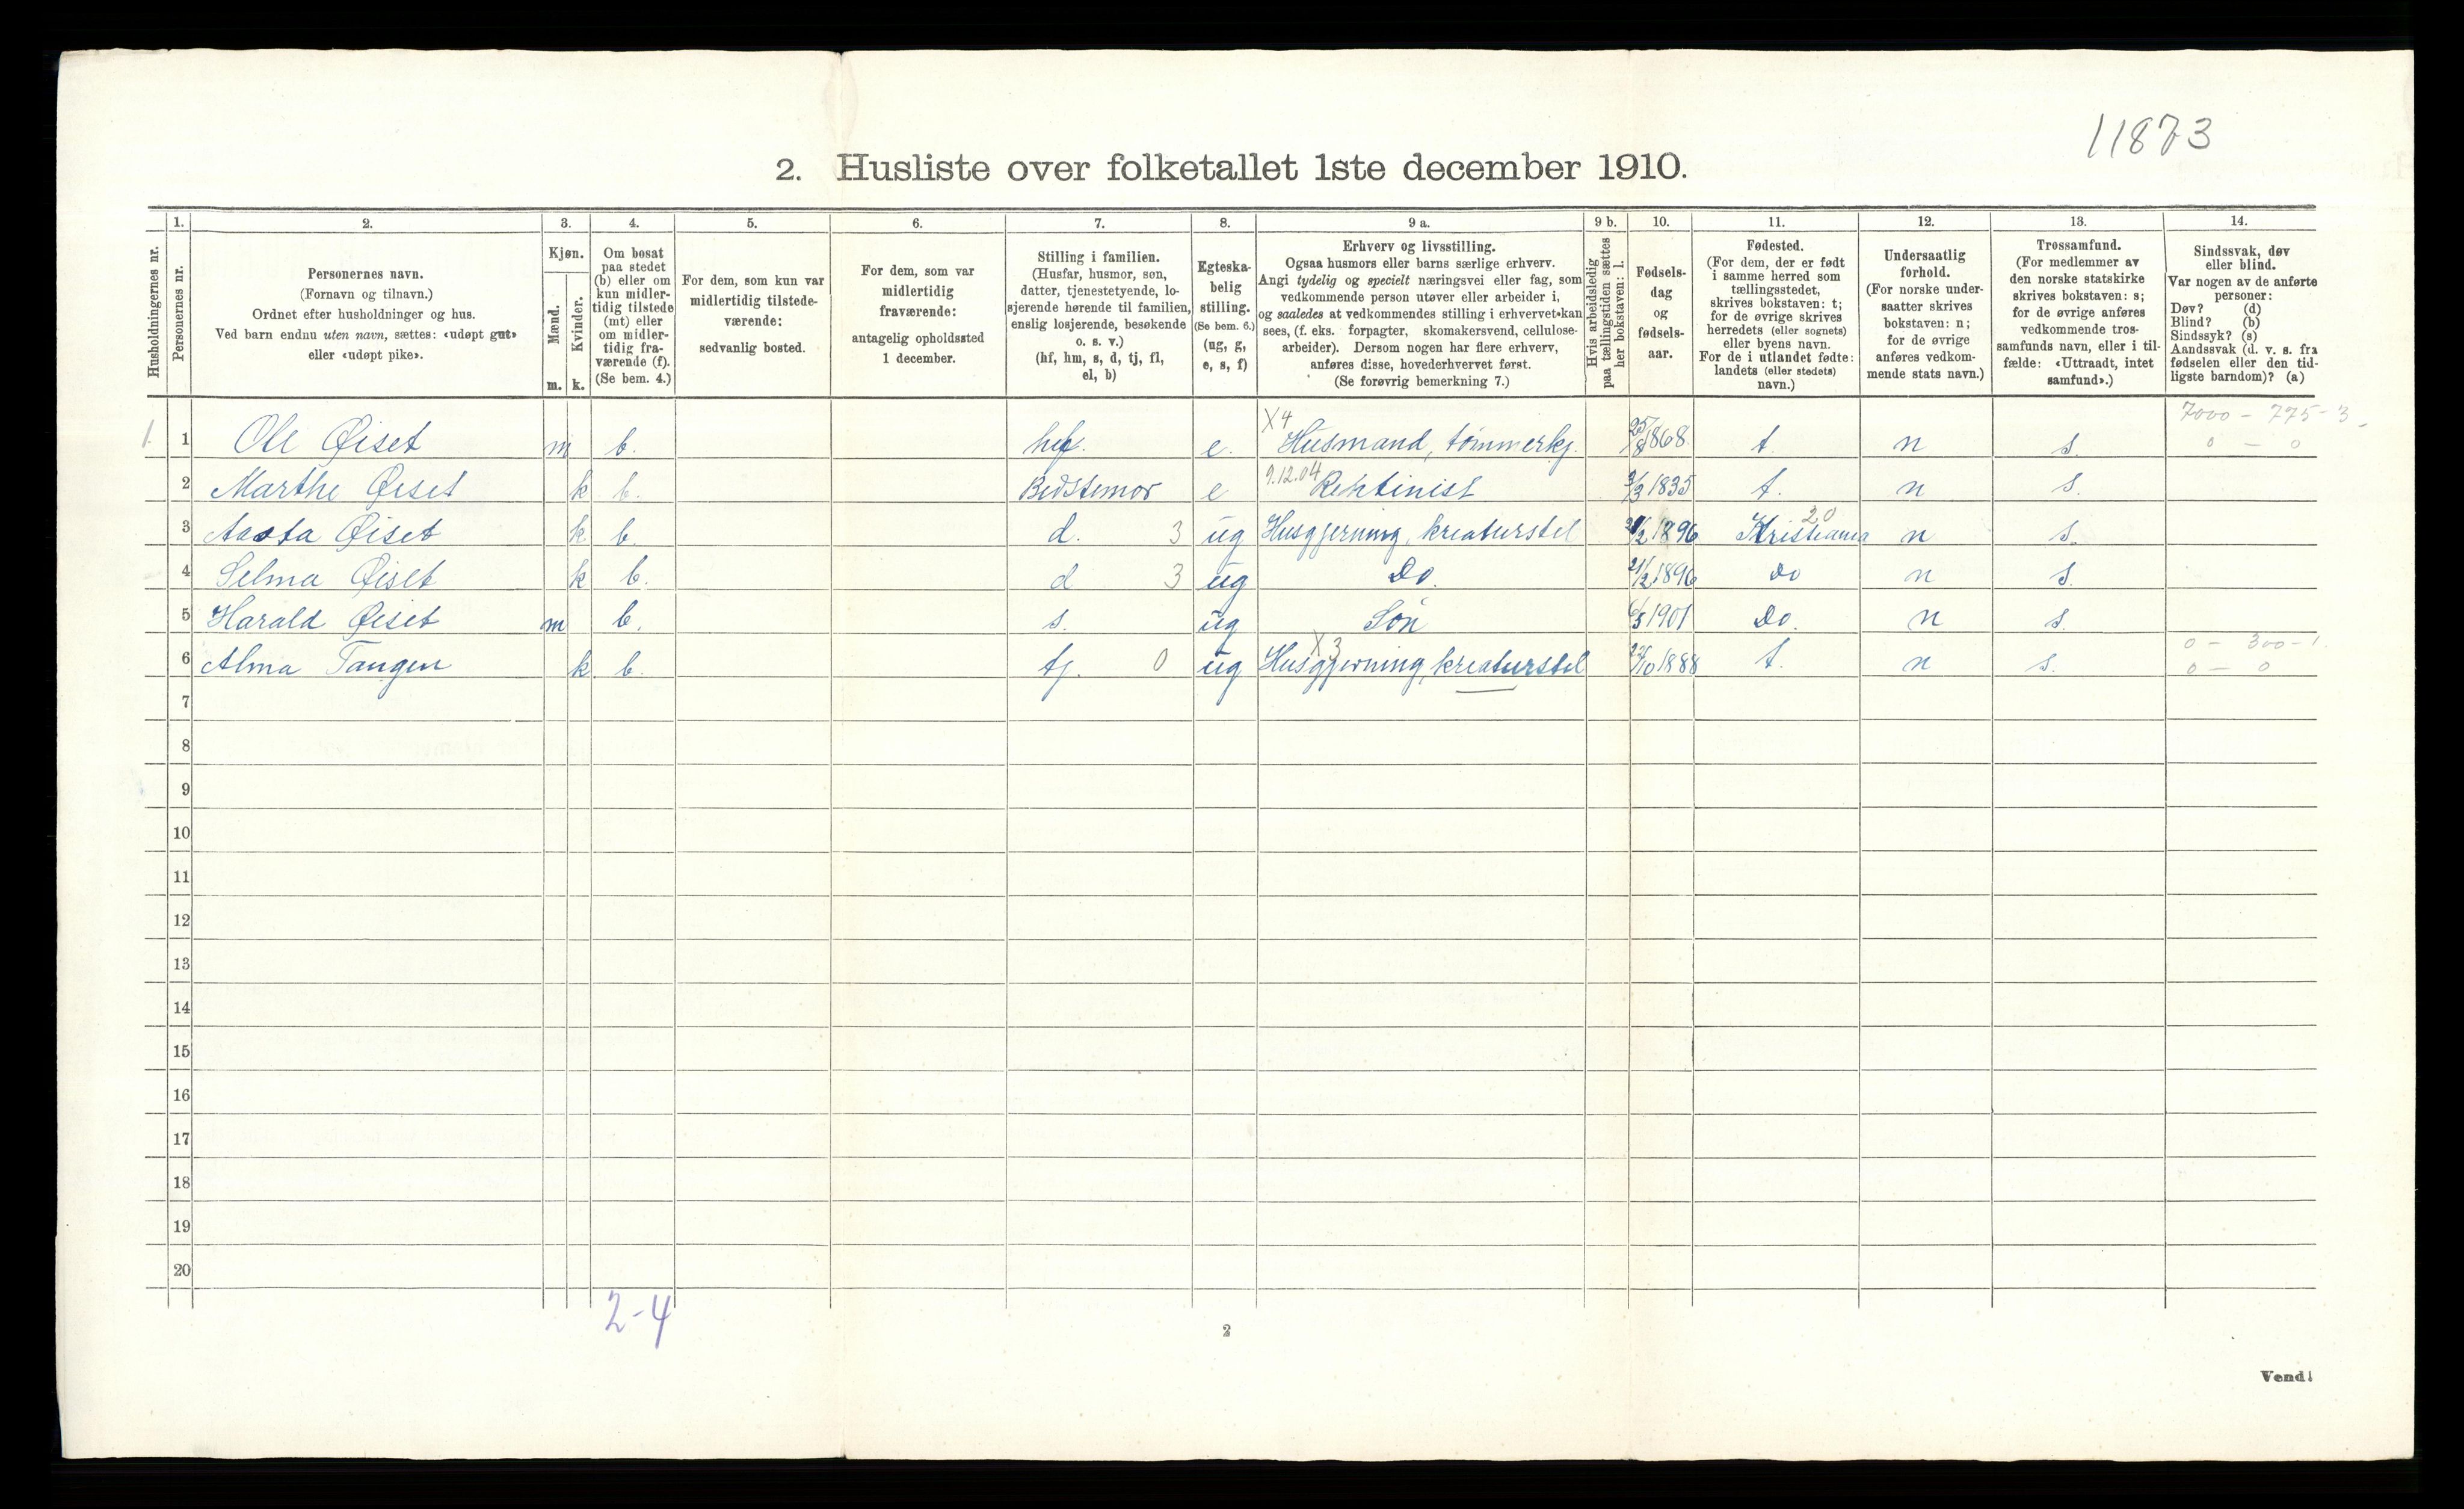 11873
2. Husliste over folketallet 1ste december 1910.
Husholdningernes nr.
1.
Personernes nr.
2.
Personernes navn.
(Fornavn og tilnavn.)
Ordnet efter husholdninger og hus.
Ved barn endnu uten navn, sættes: «udøpt gut»
eller «udøpt pike».
3.
Kjøn.
Mænd.
Kvinder.
m. k.
4.
Om bosat
paa stedet
(b) eller om
kun midler-
tidig tilstede
(mt) eller
om midler-
tidig fra-
værende (f).
(Se bem. 4.)
5.
For dem, som kun var
midlertidig tilstede-
værende:
sedvanlig bosted.
6.
For dem, som var
midlertidig
fraværende:
antagelig opholdssted
1 december.
7.
Stilling i familien.
(Husfar, husmor, søn,
datter, tjenestetyende, lo-
sjerende hørende til familien,
enslig losjerende, besøkende
o. s. v.)
(hf, hm, s, d, tj, fl,
el, b)
8.
Egteska-
belig
stilling.
(Se bem. 6.)
(ug, g,
e, s, f)
9 a.
Erhverv og livsstilling.
Ogsaa husmors eller barns særlige erhverv.
Angi tydelig og specielt næringsvei eller fag, som
vedkommende person utøver eller arbeider i,
og saaledes at vedkommendes stilling i erhvervet kan
sees, (f. eks. forpagter, skomakersvend, cellulose-
arbeider). Dersom nogen har flere erhverv,
anføres disse, hovederhvervet først.
(Se forøvrig bemerkning 7.)
9 b.
Hvis arbeidsledig
paa tællingstiden sættes
her bokstaven: l.
10.
Fødsels-
dag
og
fødsels-
aar.
11.
Fødested.
(For dem, der er født
i samme herred som
tællingsstedet,
skrives bokstaven: t;
for de øvrige skrives
herredets (eller sognets)
eller byens navn.
For de i utlandet fødte:
landets (eller stedets)
navn.)
12.
Undersaatlig
forhold.
(For norske under-
saatter skrives
bokstaven: n;
for de øvrige
anføres vedkom-
mende stats navn.)
13.
Trossamfund.
(For medlemmer av
den norske statskirke
skrives bokstaven: s;
for de øvrige anføres
vedkommende tros-
samfunds navn, eller i til-
fælde: «Uttraadt, intet
samfund».)
14.
Sindssvak, døv
eller blind.
Var nogen av de anførte
personer:
Døv? (d)
Blind? (b)
Sindssyk? (s)
Aandssvak (d. v. s. fra
fødselen eller den tid-
ligste barndom)? (a)
X4 7000 - 775 - 3
1. 1 Ole Øiset m b. hf. e. Husmand, tømmerkj. 25/8 1868 t. n s. 0 - 0
9.12.04
2 Marthe Øiset k b. Bedstemor e 3/3 1835 t. n s.
20
3 Aasta Øiset k b. d. 3 ug Husgjerning, kreaturstel 21/2 1896 Kristiania n s.
4 Selma Øiset k b. d 3 ug Do. 21/2 1896 Do n s.
5 Harald Øiset m b. s. ug Søn 6/3 1901 Do. n s.
X3 0 - 300 - 1.
6 Alma Tangen k b. tj. 0 ug Husgjerning, kreaturstel /10 1888 t. n s. 0 - 0
7
8
9
10
11
12
13
14
15
16
17
18
19
20
2-4
2
Vend!